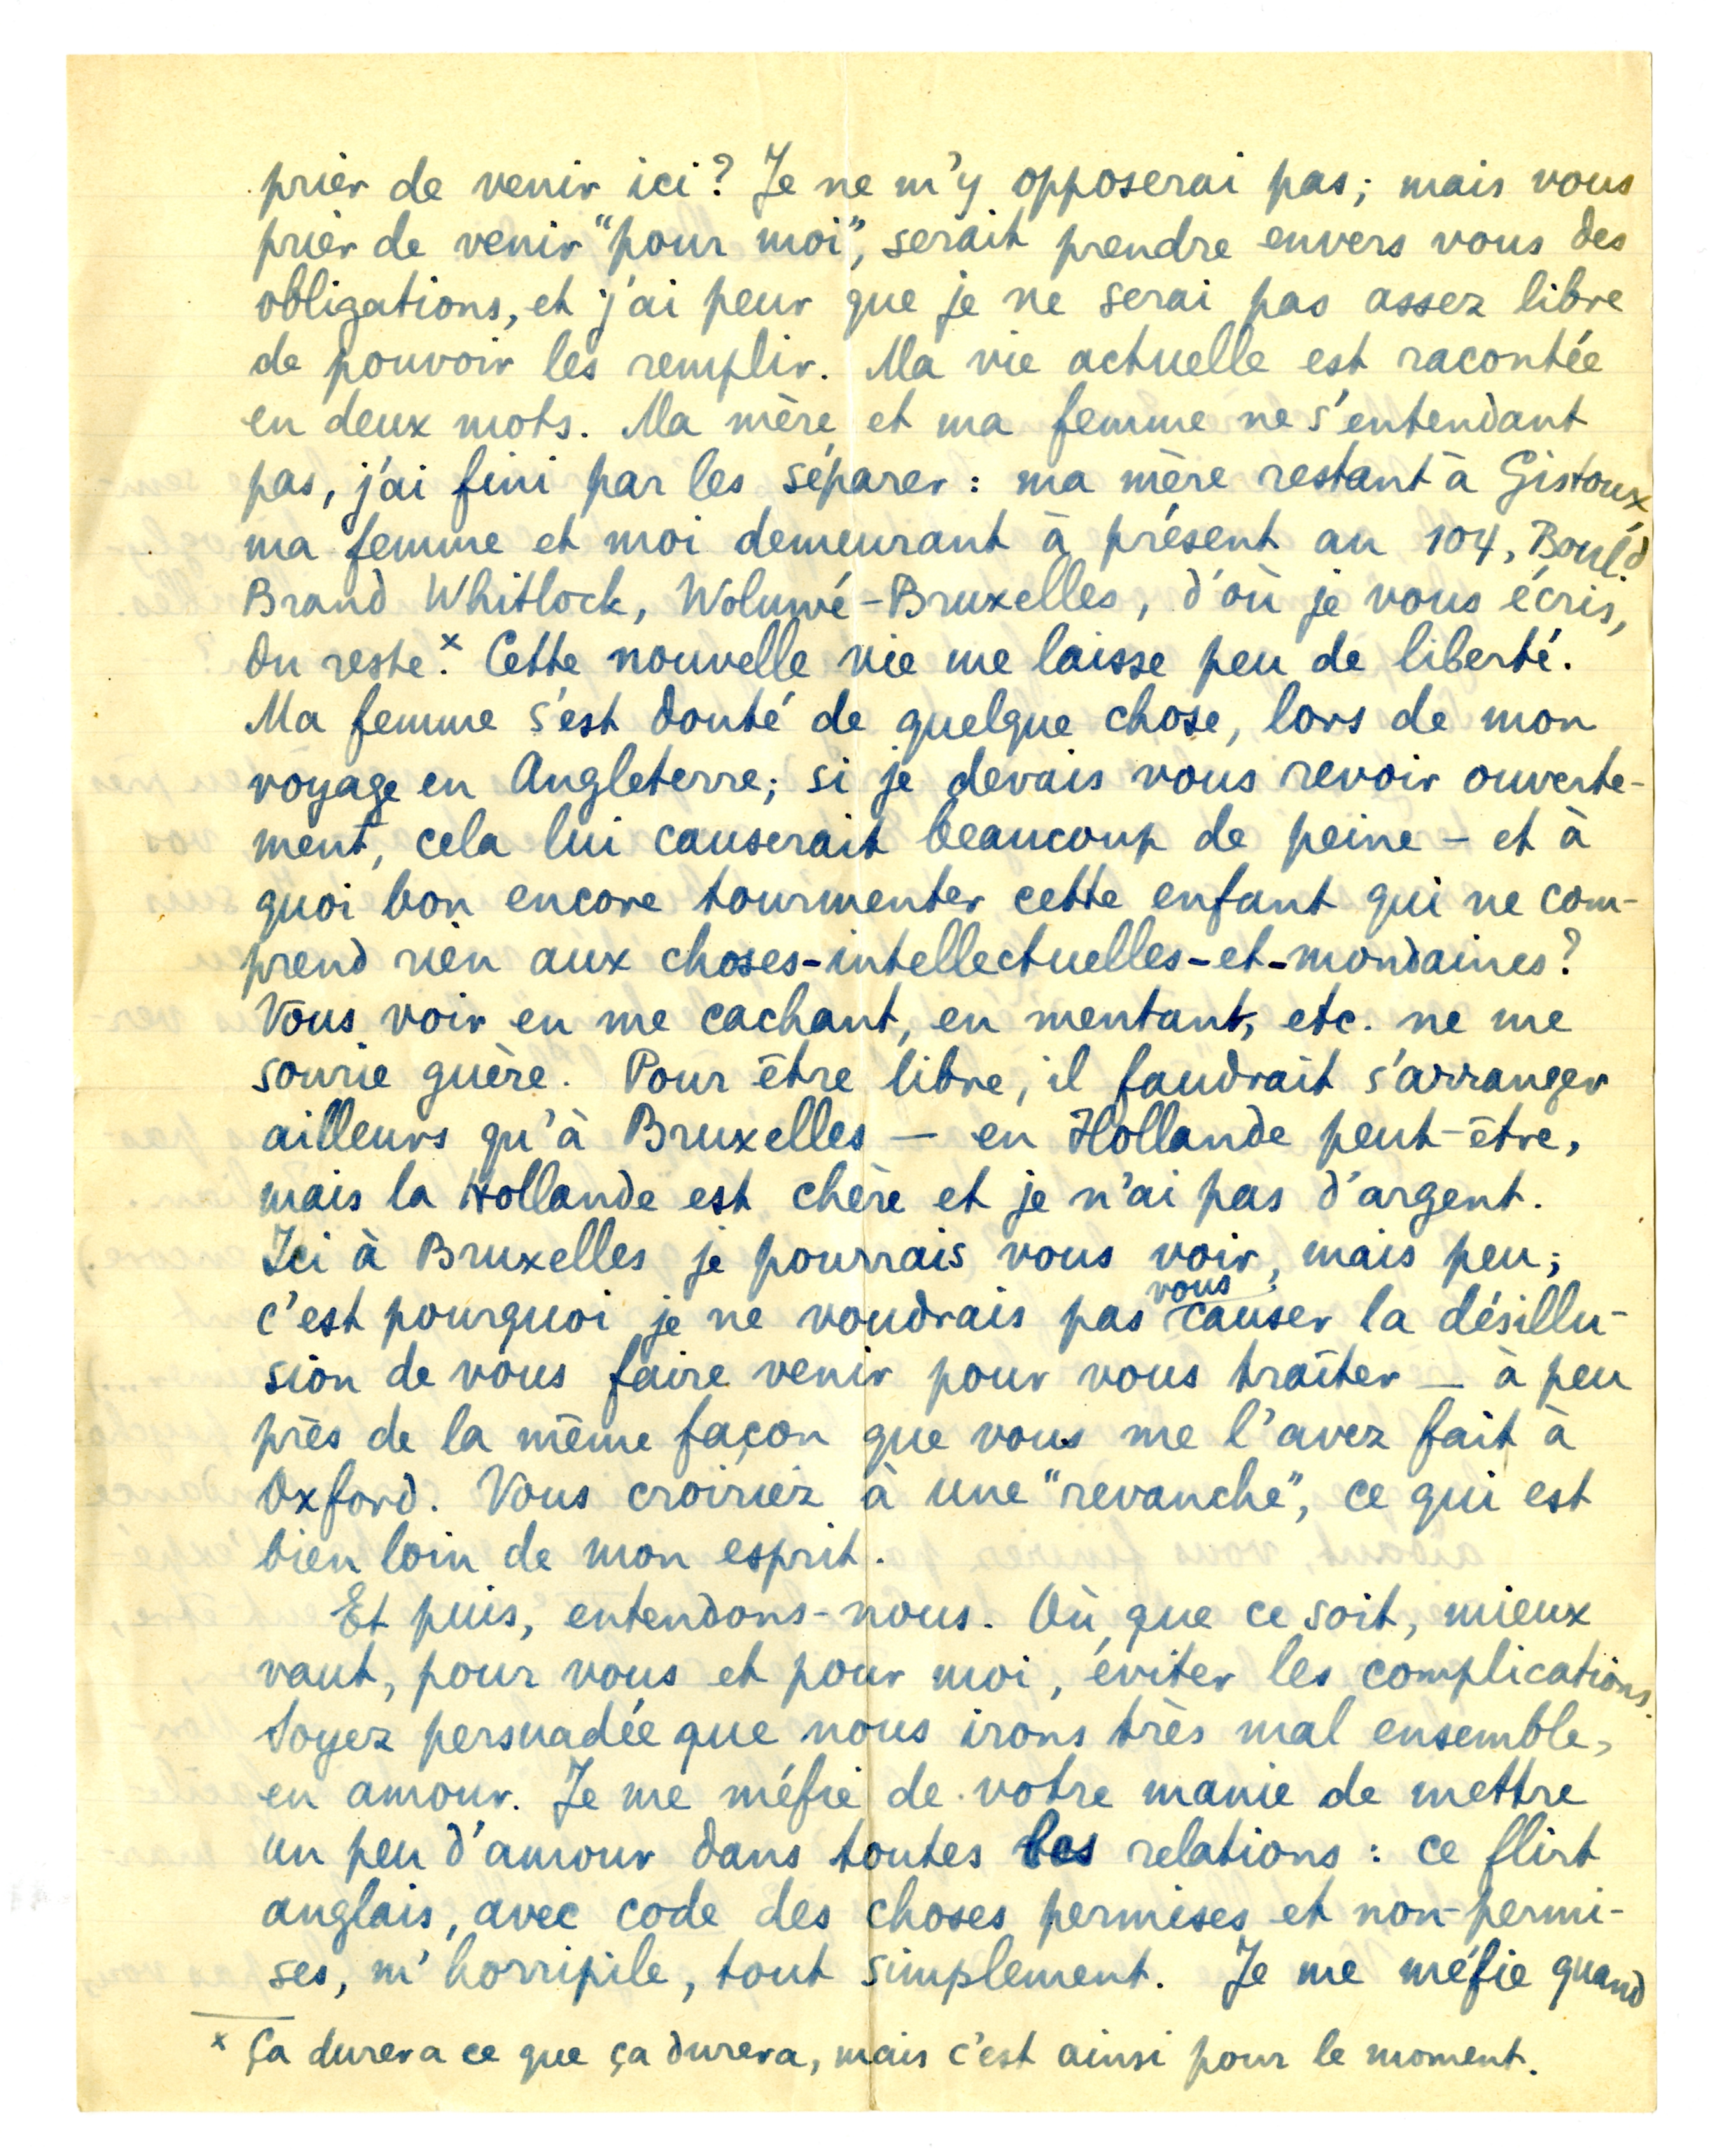 prier de venir ici? Je ne m'y opposerai pas; mais vous
prier de venir "pour moi", serait prendre envers vous des
obligations, et j'ai peur que je ne serai pas assez libre
de pouvoir les remplir. Ma vie actuelle est racontée
en deux mots. Ma mère et ma femme ne s'entendant
pas, j'ai fini par les séparer: ma mère restant à Gistoux,
ma femme et moi demeurant à présent au 104, Boul.d
Brand Whitlock, Woluwé-Bruxelles, d'où je vous écris,
du reste.x Cette nouvelle vie me laisse peu de liberté.
Ma femme s'est douté de quelque chose, lors de mon
voyage en Angleterre; si je devais vous revoir ouverte-
ment, cela lui causerait beaucoup de peine – et à
quoi bon encore tourmenter cette enfant qui ne com-
prend rien aux choses-intellectuelles-et-mondaines?
Vous voir en me cachant, en mentant, etc. ne me
sourie guère. Pour être libre, il faudrait s'arranger
ailleurs qu'à Bruxelles — en Hollande peut-être,
mais la Hollande est chère et je n'ai pas d'argent.
Ici à Bruxelles je pourrais vous voir, mais peu;
c'est pourquoi je ne voudrais pas vous causer la désillu-
sion de vous faire venir pour vous traîter — à peu
près de la même façon que vous me l'avez fait à
Oxford. Vous croiriez à une "revanche", ce qui est
bien loin de mon esprit.
Et puis, entendons-nous. Où que ce soit, mieux
vaut, pour vous et pour moi, éviter les complications.
Soyez persuadée que nous irons très mal ensemble,
en amour. Je me méfie de votre manie de mettre
un peu d'amour dans toutes les relations: ce flirt
anglais, avec code des choses permises et non-permi-
ses, m'horripile, tout simplement. Je me méfie quand
x Ça durera ce que ça durera, mais c'est ainsi pour le moment.